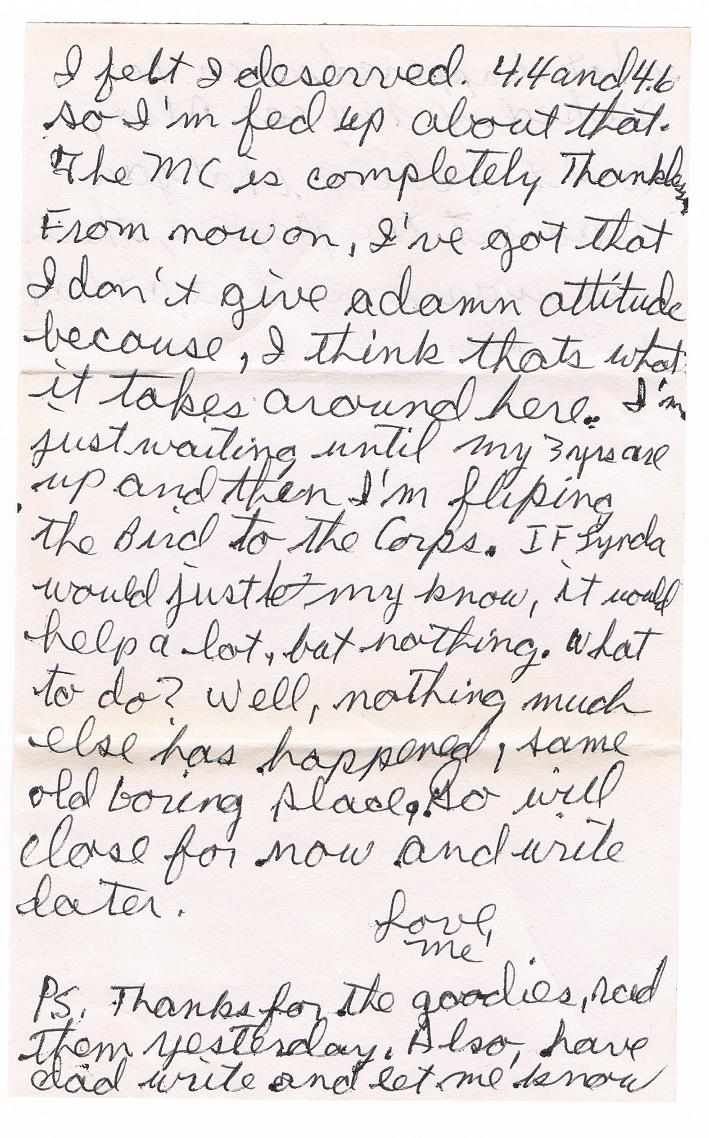 I felt I deserved. 4.4 and 4.6
so I'm fed up about that.
The MC is completely Thankless
From now on, I've got that
I don't give a damn attitude
because, I think thats what
it takes around here. I'm
just waiting until my 3 yrs are
up and then I'm fliping
the Bird to the Corps. IF Lynda
would just let my know, it would
help a lot, but nothing. What
to do? Well, nothing much
else has happened, same
old boring place. So will
close for now and write
later.
Love,
me
PS. Thanks for the goodies, recd
them yesterday. Also, have
dad write and let me know